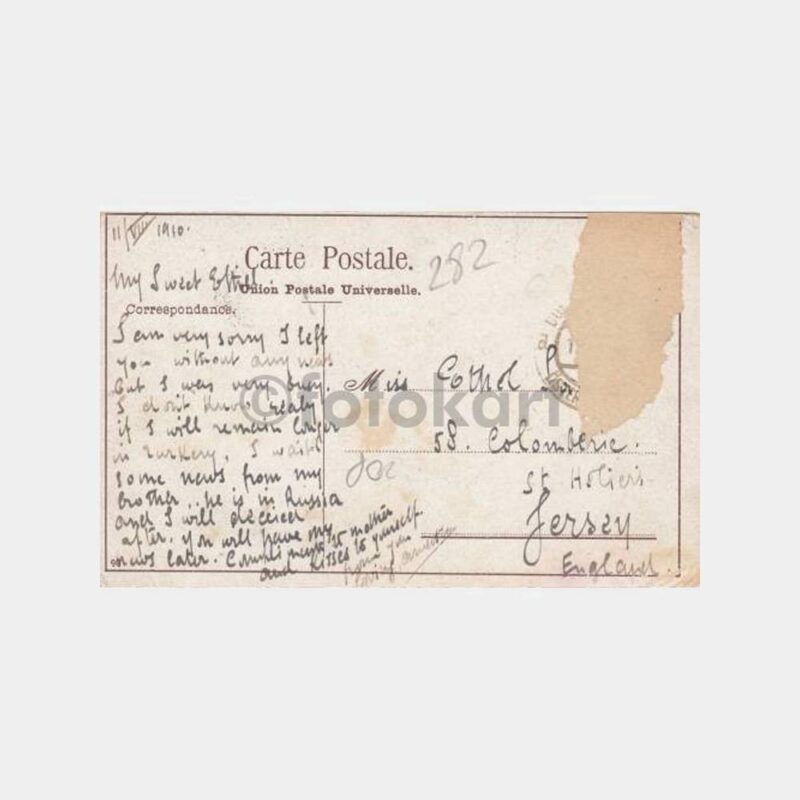 11/VIII 1910.
Carte Postale.
282
My Sweet Ethel.
Union Postale Universelle.
Correspondance.
I am very sorry I left
you without any news
but I was very busy.
I don't know realy
if I will remain longer
in Turkey. I wait
some news from my
brother.. he is in Russia
and I will deceied
after. You will have my
news later. Compliments to mother
and kisses to yourself.
from your
loving
Miss Ethel
58. Colomberie.
St Heliers
Jersey
England.
©fotokart